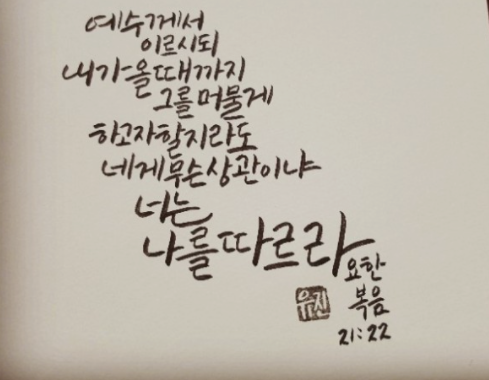 예수께서
이르시되
내가 올 때까지
그를 머물게
하고자 할지라도
네게 무슨 상관이냐
너는
나를 따르라
요한
복음
21:22
유진